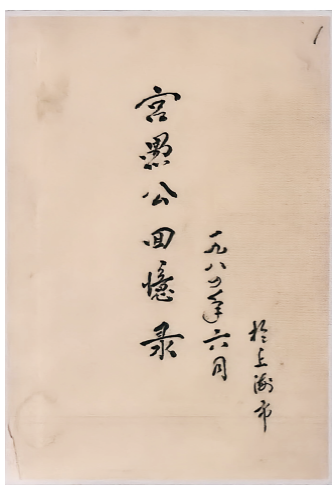 宫愚公回憶录
一九八四年六月
於上海市